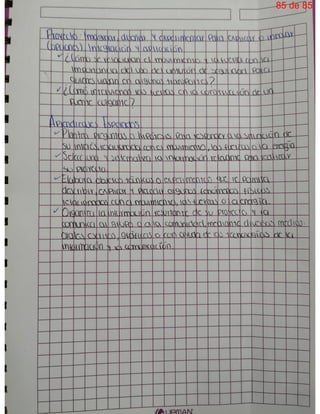 85 de 85
Proyecto Imaginar, diseñar y experimentar para explicar o innovar
(opciones). Integración y aplicación
✓ ¿Cómo se relacionan el movimiento y la fuerza con la
importancia del uso del cinturón de seguridad para
quienes viajan en algunos transportes?
✓ ¿Cómo intervienen las fuerzas en la construcción de un
puente colgante?
Aprendizajes Esperados
✓ Plantea preguntas o hipótesis para responder a la situación de
su interés, relacionada con el movimiento, las fuerzas o la energía.
✓ Selecciona y sistematiza la información relevante para realizar
su proyecto.
✓ Elabora objetos técnicos o experimentos que le permitan
describir, explicar y predecir algunos fenómenos físicos
relacionados con el movimiento, las fuerzas o la energía.
✓ Organiza la información resultante de su proyecto y la
comunica al grupo o a la comunidad, mediante diversos medios:
orales, escritos, gráficos o con ayuda de las tecnologías de la
información y la comunicación.
URMAN